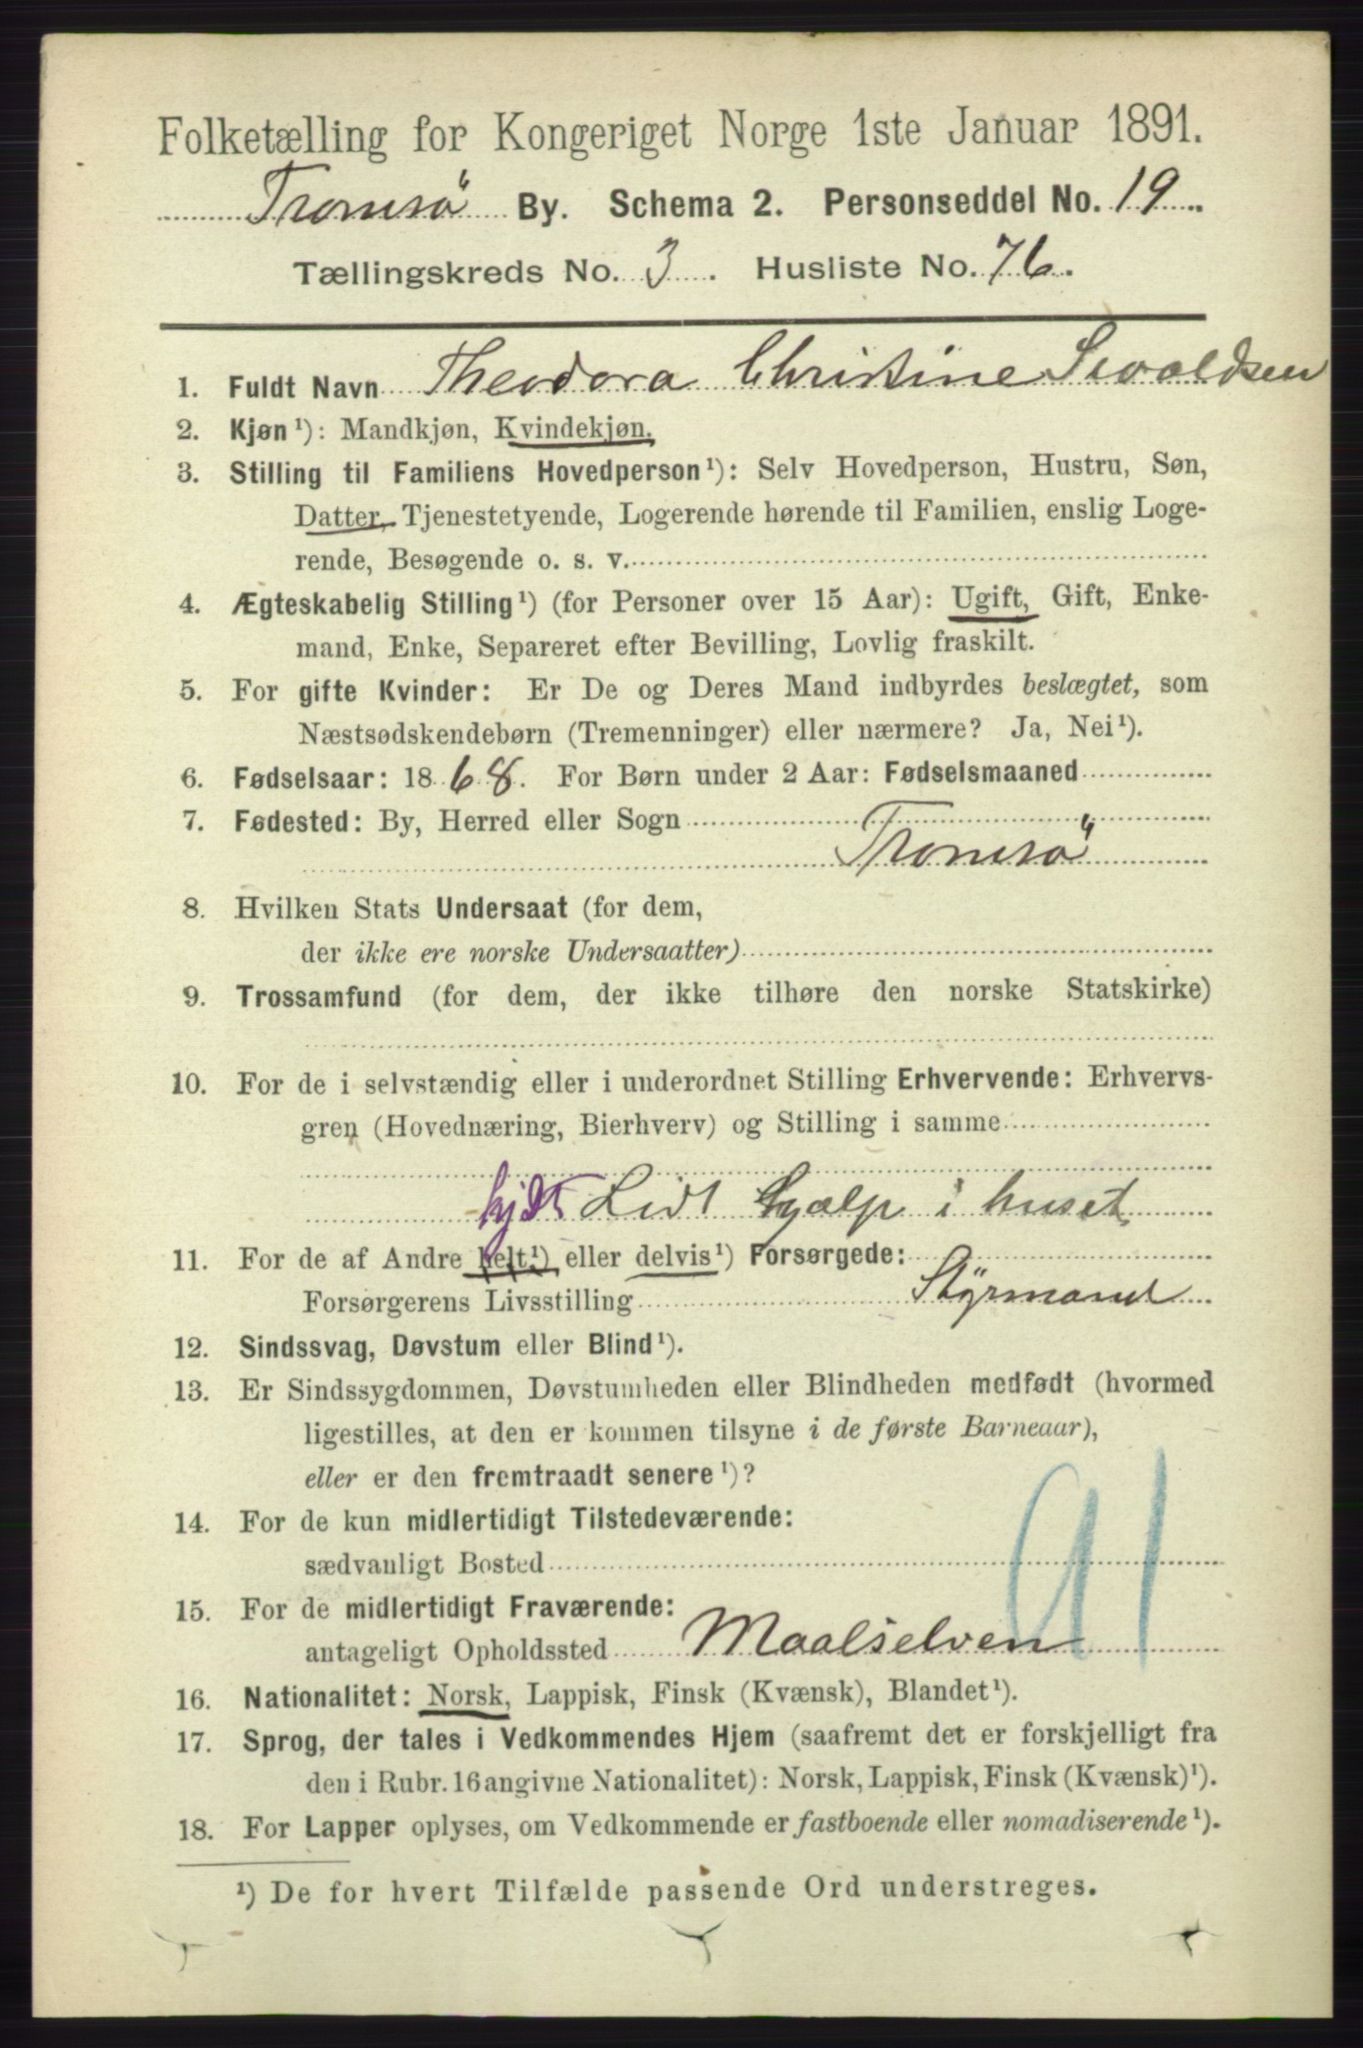 Folketælling for Kongeriget Norge 1ste Januar 1891.
Tromsö By. Schema 2. Personseddel No. 19
Tællingskreds No. 3. Husliste No. 76.
1. Fuldt Navn Theodora Christine Sivaldsen
2. Kjøn¹): Mandkjøn, Kvindekjøn.
3. Stilling til Familiens Hovedperson¹): Selv Hovedperson, Hustru, Søn,
Datter, Tjenestetyende, Logerende hørende til Familien, enslig Loge-
rende, Besøgende o. s. v.
4. Ægteskabelig Stilling¹) (for Personer over 15 Aar): Ugift, Gift, Enke-
mand, Enke, Separeret efter Bevilling, Lovlig fraskilt.
5. For gifte Kvinder: Er De og Deres Mand indbyrdes beslægtet, som
Næstsødskendebørn (Tremenninger) eller nærmere? Ja, Nei¹).
6. Fødselsaar: 1868. For Børn under 2 Aar: Fødselsmaaned
7. Fødested: By, Herred eller Sogn
Tromsö
8. Hvilken Stats Undersaat (for dem,
der ikke ere norske Undersaatter)
9. Trossamfund (for dem, der ikke tilhøre den norske Statskirke)
10. For de i selvstændig eller i underordnet Stilling Erhvervende: Erhvervs-
gren (Hovednæring, Bierhverv) og Stilling i samme
hjdt Lidt hjælp i huset
11. For de af Andre helt¹) eller delvis¹) Forsørgede:
Forsørgerens Livsstilling Styrmand
12. Sindssvag, Døvstum eller Blind¹).
13. Er Sindssygdommen, Døvstumheden eller Blindheden medfødt (hvormed
ligestilles, at den er kommen tilsyne i de første Barneaar),
eller er den fremtraadt senere¹)?
14. For de kun midlertidigt Tilstedeværende:
sædvanligt Bosted
91
15. For de midlertidigt Fraværende:
antageligt Opholdssted Maalselven
16. Nationalitet: Norsk, Lappisk, Finsk (Kvænsk), Blandet¹).
17. Sprog, der tales i Vedkommendes Hjem (saafremt det er forskjelligt fra
den i Rubr. 16 angivne Nationalitet): Norsk, Lappisk, Finsk (Kvænsk)¹).
18. For Lapper oplyses, om Vedkommende er fastboende eller nomadiserende¹).
¹) De for hvert Tilfælde passende Ord understreges.